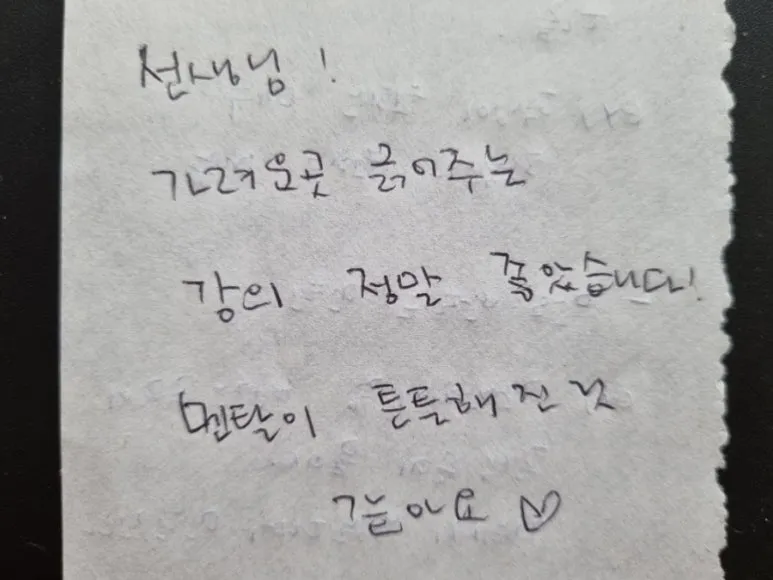 선생님!
가려운곳 긁어주는
강의 정말 좋았습니다!
멘탈이 튼튼해진 것
같아요 ♡